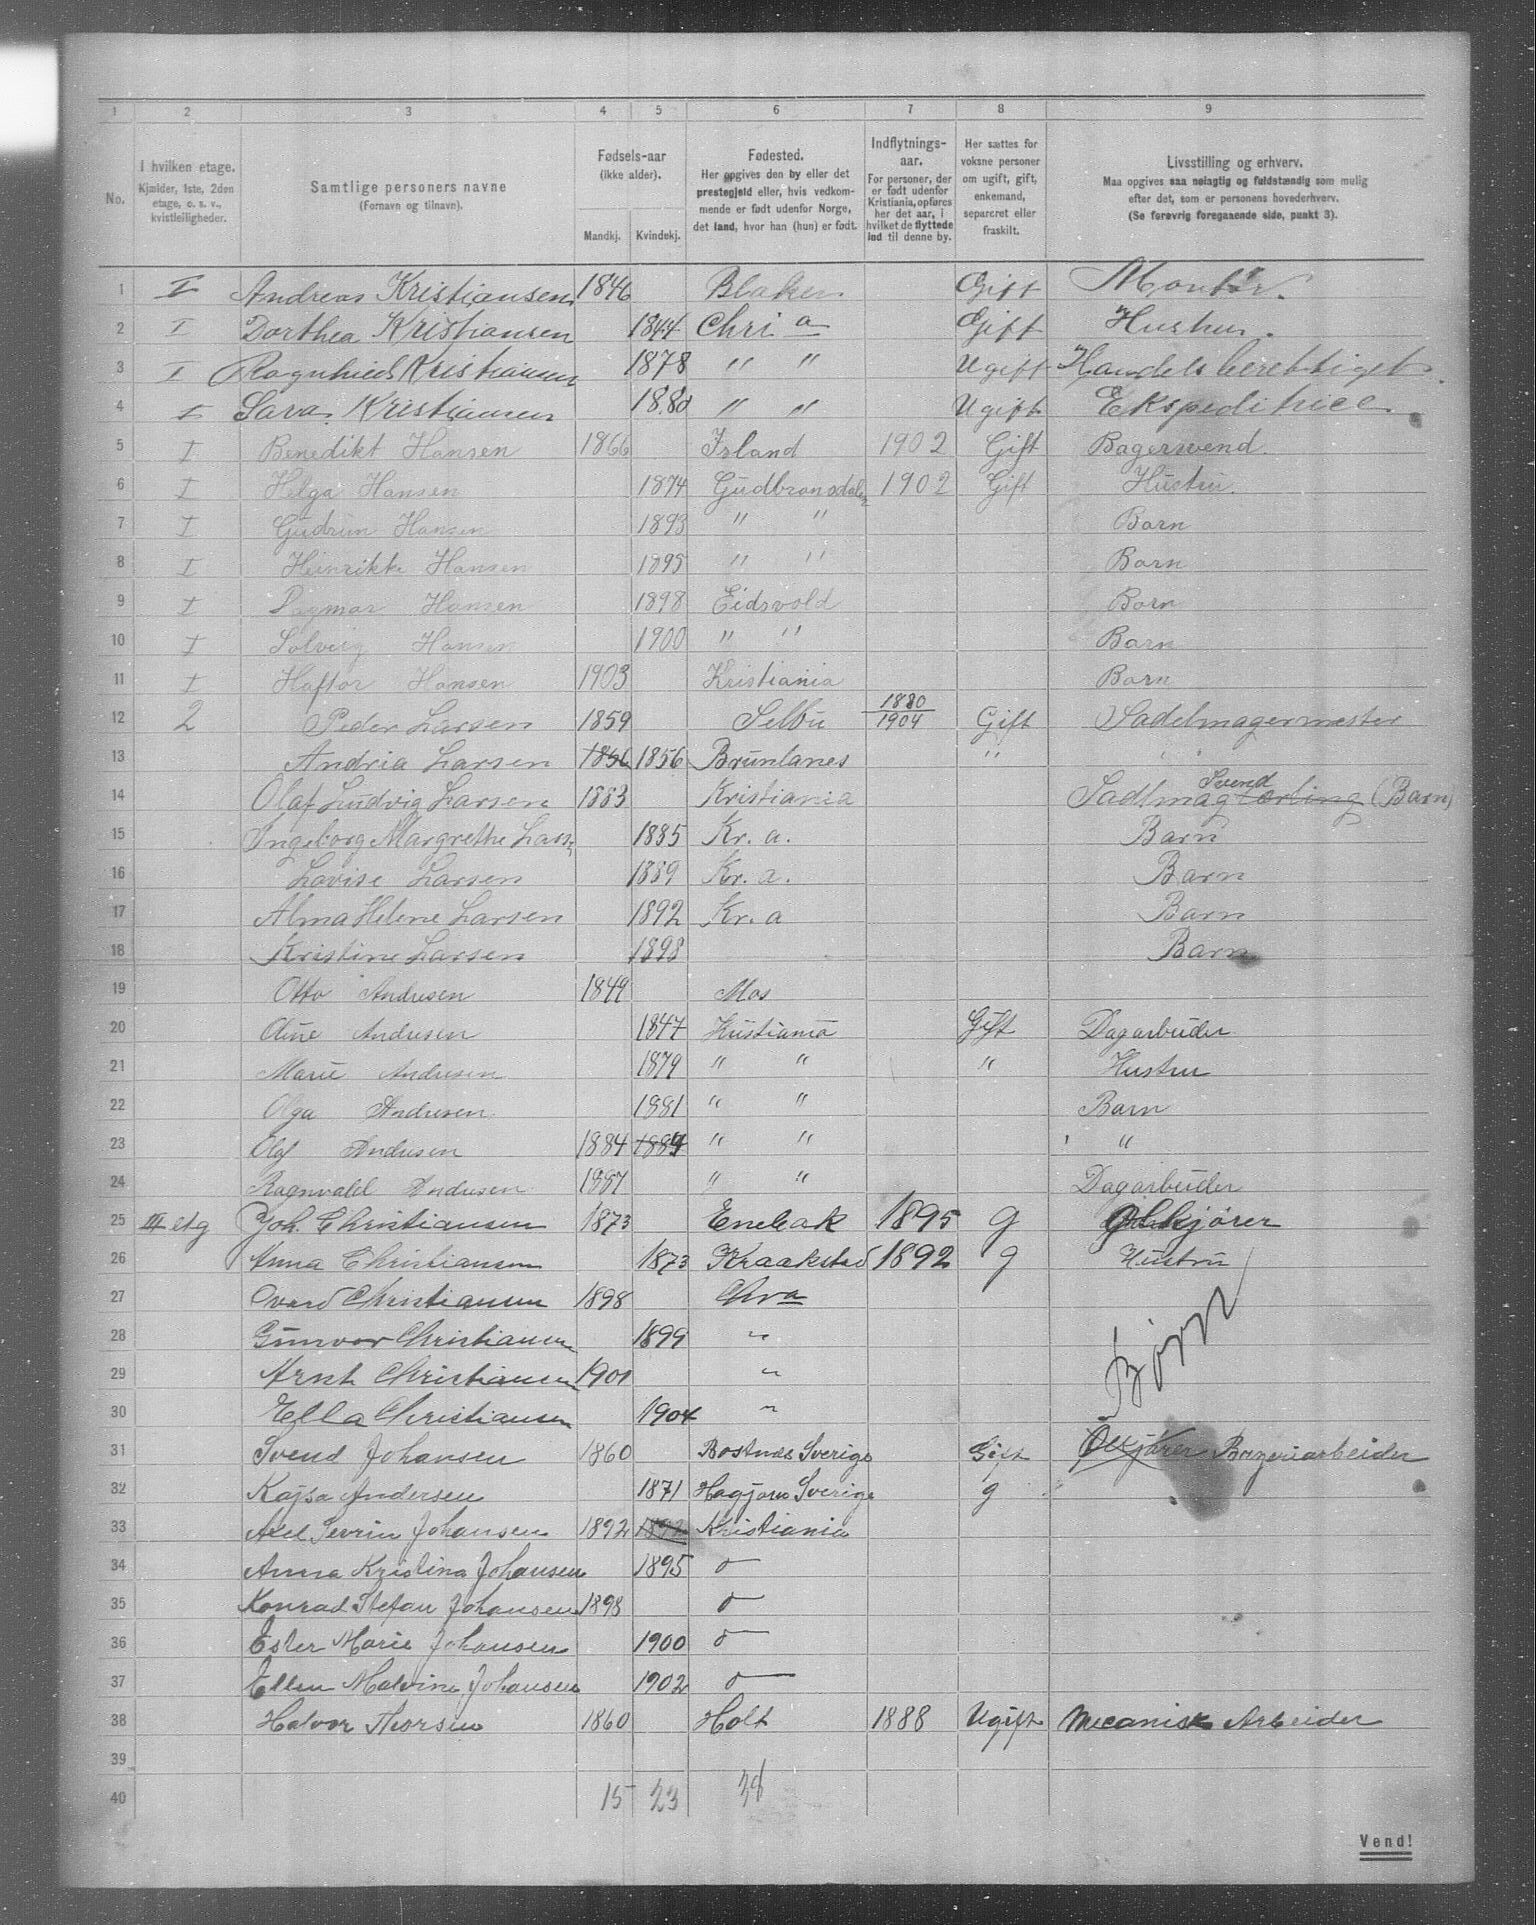 1 2 3 4 5 6 7 8 9
No.
I hvilken etage.
Kjælder, 1ste, 2den
etage, o. s. v.,
kvistleiligheder.
Samtlige personers navne
(Fornavn og tilnavn).
Fødsels-aar
(ikke alder).
Mandkj. Kvindekj.
Fødested.
Her opgives den by eller det
prestegjeld eller, hvis vedkom-
mende er født udenfor Norge,
det land, hvor han (hun) er født.
Indflytnings-
aar.
For personer, der
er født udenfor
Kristiania, opføres
her det aar, i
hvilket de flyttede
ind til denne by.
Her sættes for
voksne personer
om ugift, gift,
enkemand,
separeret eller
fraskilt.
Livsstilling og erhverv.
Maa opgives saa nøiagtig og fuldstændig som mulig
efter det, som er personens hovederhverv.
(Se forøvrig foregaaende side, punkt 3).
1 I Andreas Kristiansen 1846 Blaker Gift Montør.
2 I Dorthea Kristiansen 1844 Chria Gift Hustru.
3 I Ragnhied Kristiansen 1878 " " Ugift Handelsberettiget.
4 I Sara Kristiansen 1880 " " Ugift Ekspeditrice
5 I Benedikt Hansen 1866 Island 1902 Gift Bagersvend.
6 I Helga Hansen 1874 Gudbransdalen 1902 Gift Hustru.
7 I Gudrun Hansen 1893 " " Barn
8 I Heinrikke Hansen 1895 " " Barn
9 I Dagmar Hansen 1898 Eidsvold Barn
10 I Solveig Hansen 1900 " " Barn
11 I Haftor Hansen 1903 Kristiania Barn
12 2 Peder Larsen 1859 Selbu 1880/1904 Gift Sadelmagermester
13 Andria Larsen 1856 1856 Brunlanes " " "
14 Olaf Ludvig Larsen 1883 Kristiania Sadlmaglærling Svend (Barn)
15 Ingeborg Margrethe Larsn 1885 Kr. a. Barn
16 Lovise Larsen 1889 Kr. a. Barn
17 Alma Helene Larsen 1892 Kr. a Barn
18 Kristine Larsen 1898 Barn
19 Otto Andresen 1849 Mos
20 Oline Andresen 1847 Kristiania Gift Dagarbeider
21 Marie Andresen 1879 " " " Hustru
22 Olga Andresen 1881 " " Barn
23 Olaf Andresen 1884 1884 " " "
24 Ragnvald Andresen 1887 " " Dagarbeider
25 III etg Joh. Christiansen 1873 Enebak 1895 g Ølkjører
26 Anna Christiansen 1873 Kraakstad 1892 g Hustru
27 Ovard Christiansen 1898 Chra
28 Gunvor Christiansen 1899 " Børn
29 Arnt Christiansen 1901 "
30 Ella Christiansen 1904 "
31 Svend Johansen 1860 Bostnäs Sverige Gift Ølkjører Bageriarbeider
32 Kajsa Andersen 1871 Sverige g "
33 Axel Sevrin Johansen 1892 1892 Kristiania
34 Anna Kristina Johansen 1895 o
35 Konrad Stefan Johansen 1898 o
36 Ester Marie Johansen 1900 o
37 Ellen Malvine Johansen 1902 o
38 Halvor Thorsen 1860 Holt 1888 Ugift Mecanisk Arbeider
39
40 15 23 38
Vend!